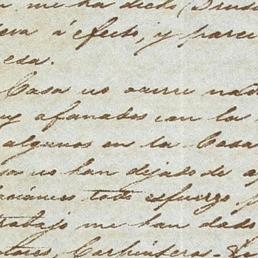 me ha dicho
leva á efecto, y parec
esa.
Casa no ocurre nada
muy afanados con la
algunos en la Casa
no han dejado de a
todo esfuerzo, y
trabajo me han dado
tores, Carpinteros